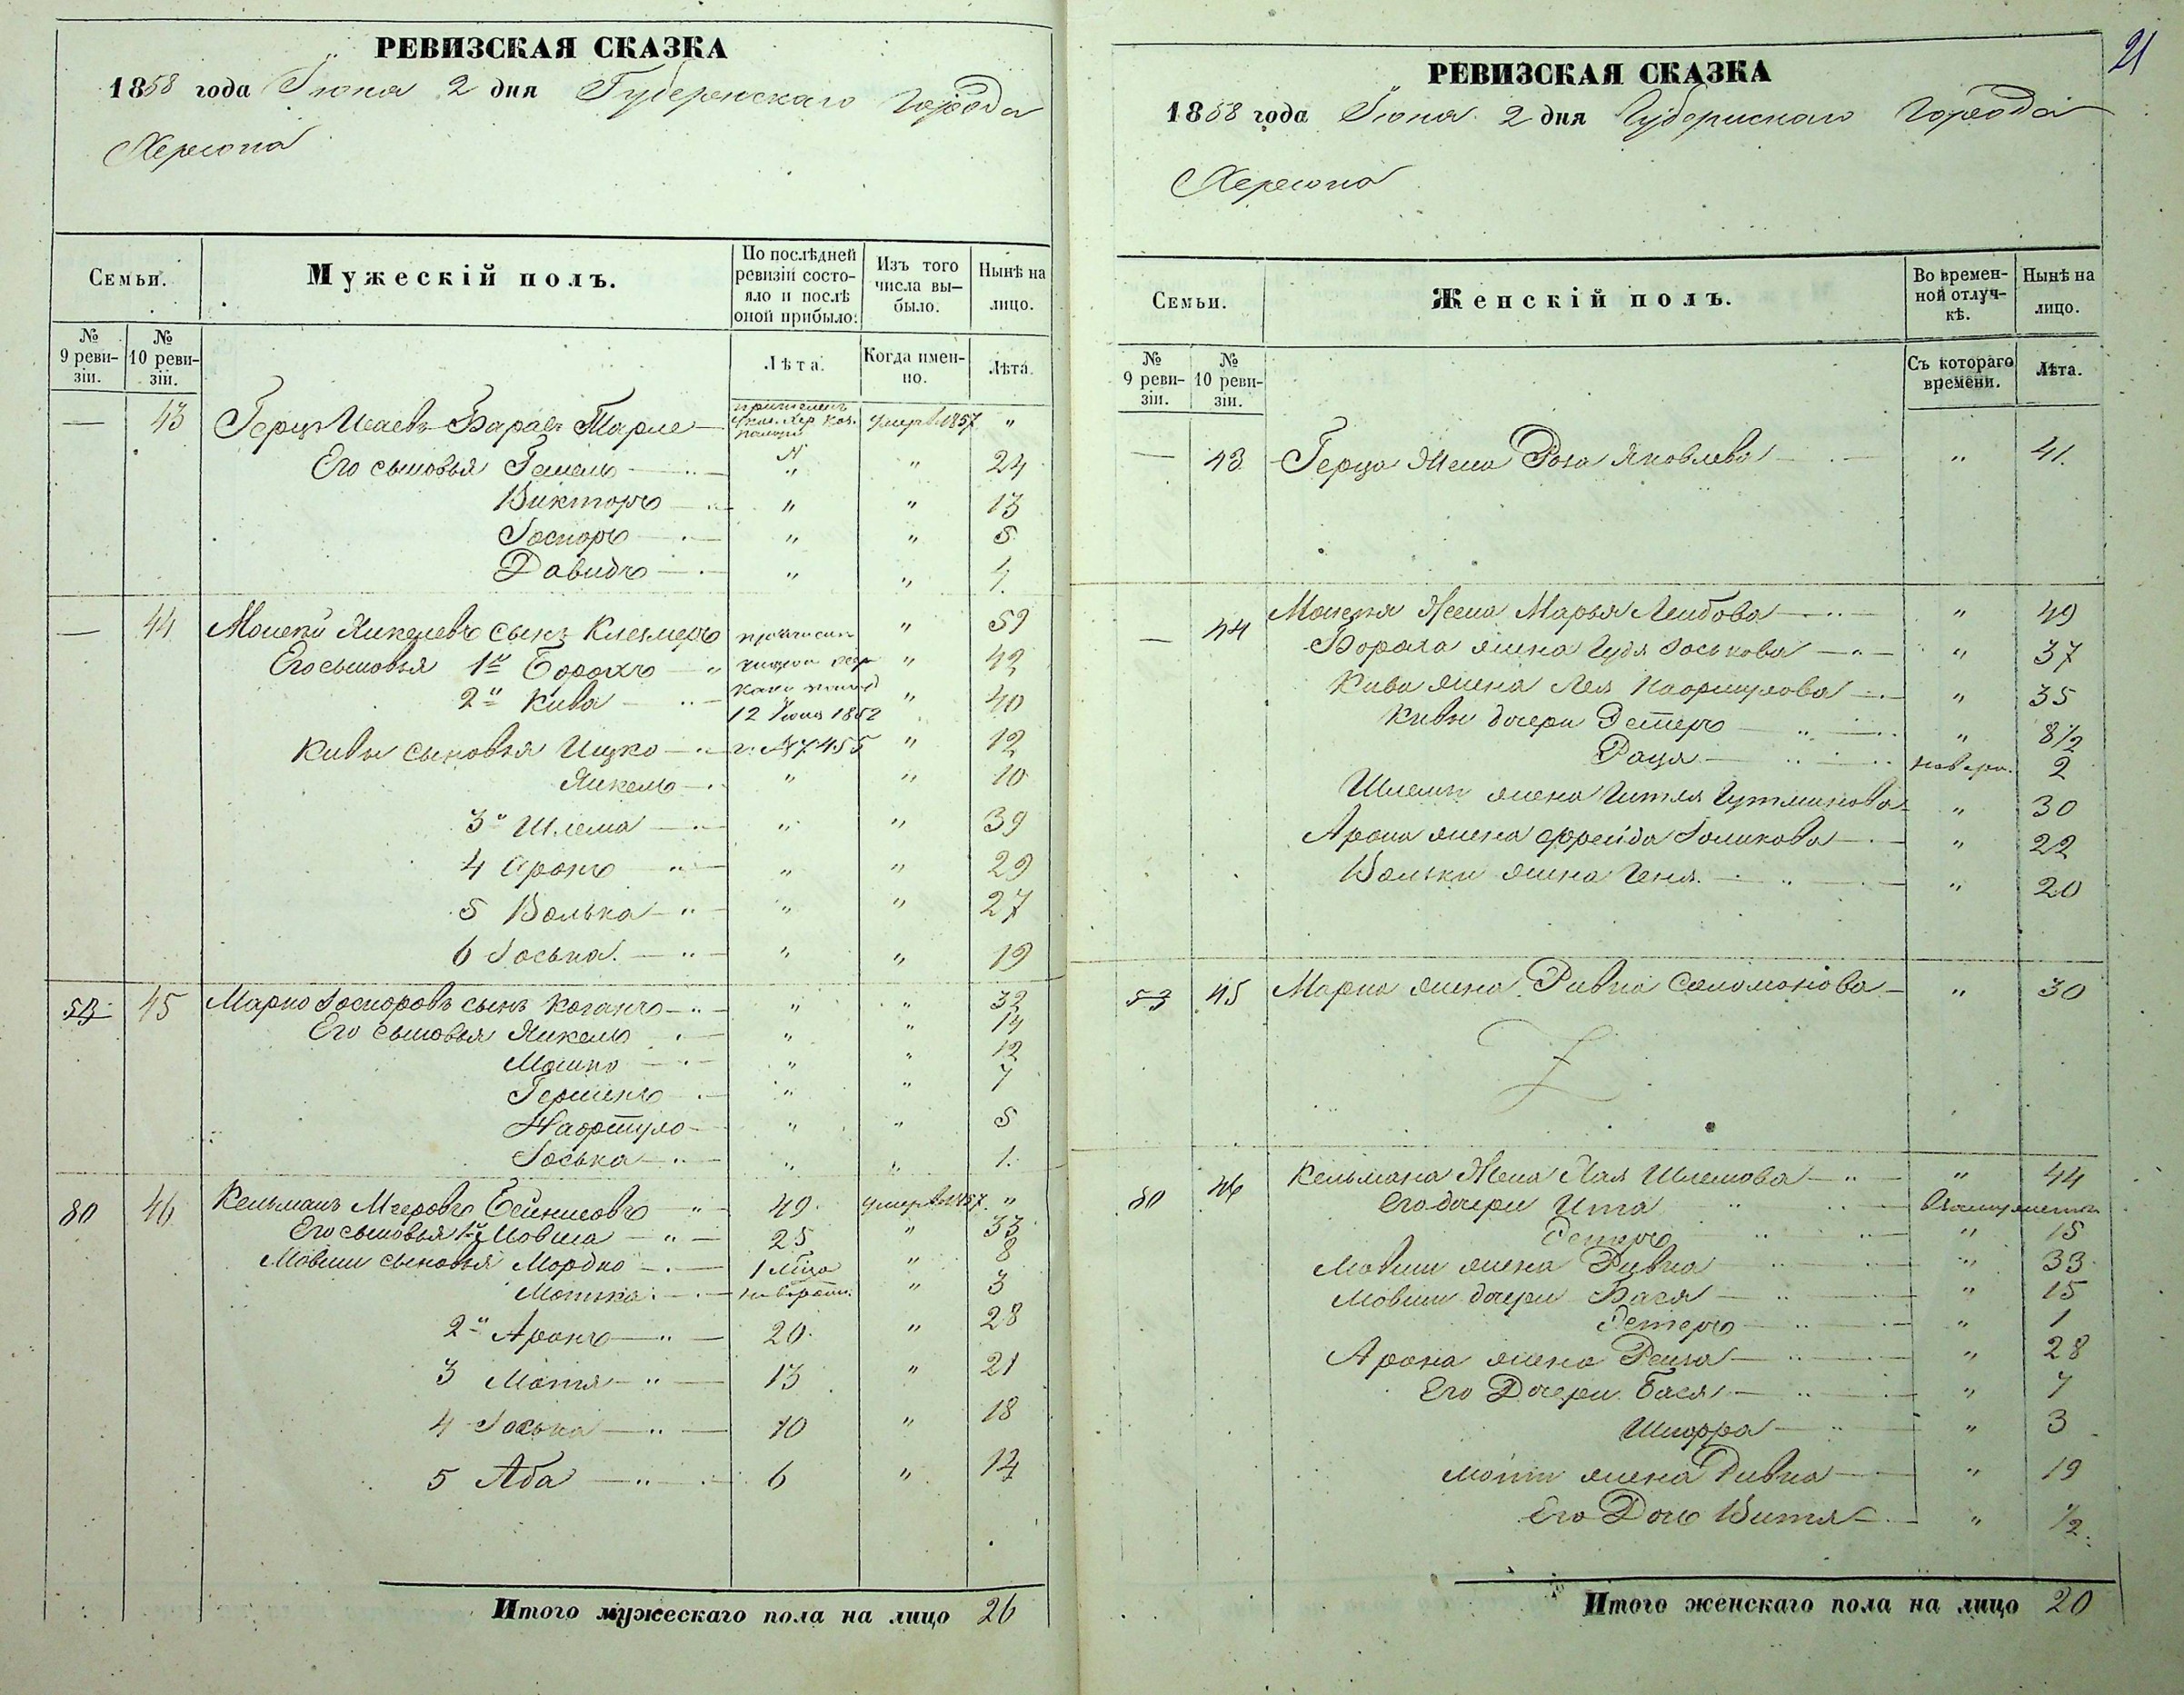 РЕВИЗСКАЯ СКАЗКА
1858 года Іюня 2 дня Губернскаго Города
Херсона
Семьи.
Мужескій полъ.
По послѣдней ревизіи состояло и послѣ оной прибыло.
Изъ того числа выбыло.
Нынѣ на лицо.
№ 9 ревизіи.
№ 10 ревизіи.
Лѣта.
Когда именно.
Лѣта.
— 43 Герцъ умеръ в 1857 "
Его сыновья " " 24
Викторъ " " 13
Іосноръ " " 5
Давидъ " " 1.
— 44 Мошко Янкелевъ сынъ " 59
Его сыновья 1й Борохъ " 42
2й Кива 12 Іюня 1852 " 40
Кивы сыновья Ицко г. № 7455 " 12
Янкель " " 10
3й Шлема " " 39
4 Аронъ " " 29
5 Волька " " 27
6 Іоська " " 19
53 45 Марко Іосноровъ сынъ Коганъ " " 32
Его сыновья Янкель " " 14
Мошко " " 12
Гершенъ " " 7
Нафтуло " " 5
Іоська " " 1.
80 46 Кельманъ Мееровъ 49 умеръ в 1857 "
Его сыновья 1й Мовша 25 " 33
Мовши сыновья Мордко 1 мѣся " 8
Мотька " 3
2й Аронъ 20 " 28
3 Мотя 13 " 21
4 Іоська 10 " 18
5 Аба 6 " 14
Итого мужескаго пола на лицо 26
21
РЕВИЗСКАЯ СКАЗКА
1858 года Іюня 2 дня Губернскаго Города
Херсона
Семьи.
Женскій полъ.
Во временной отлучкѣ.
Нынѣ на лицо.
№ 9 ревизіи.
№ 10 ревизіи.
Съ котораго времени.
Лѣта.
— 43 Герца Жена Роза Яковлева " 41.
— 44 Жена Марья Лейбова " 49
Бороха жена Гудя Іоськова " 37
Кива жена Лея Нафтулова " 35
Кивы дочери Эстеръ " 8 1/2
Рая 2
Шлемы жена Гитля " 30
Арона жена Фрейда " 22
Вольки жена Геня " 20
53 45 Марка жена Ривка Соломонова " 30
80 46 Кельмана Жена Хая Шлемова " 44
Его дочери Ита
Эстеръ " 15
Мовши жена Ривка " 33
Мовши дочери Бася " 15
Эстеръ " 1
Арона жена " 28
Его Дочери Бася " 7
Шифра " 3
Моти жена Ривка " 19
Его Дочь Витя " 1/2
Итого женскаго пола на лицо 20